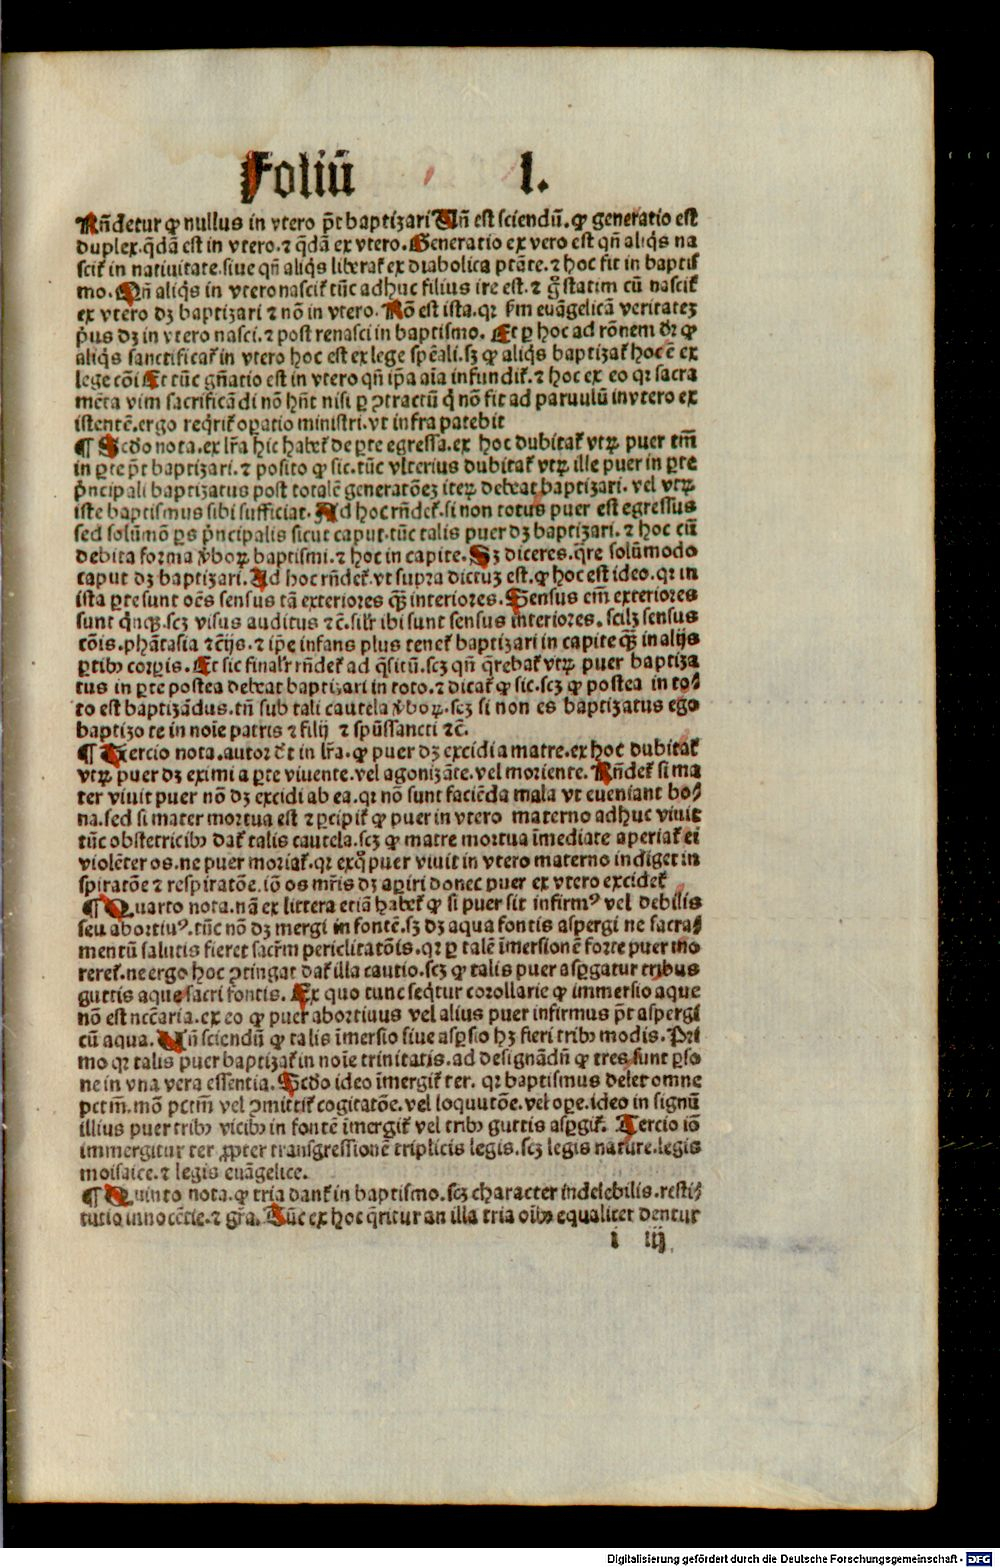 Foliū l.
Rn̄detur ꝙ nullus in vtero p̄t baptizari Vn̄ est sciendū. ꝙ generatio est
duplex. q̄dā est in vtero. ⁊ q̄dā ex vtero. Generatio ex vero est qn̄ aliq̇s na
scit̉ in natiuitate. siue qn̄ aliq̇s liberat̉ ex diabolica ptāte. ⁊ hoc fit in baptis
mo. Qn̄ aliq̇s in vtero nascit̉ tūc adhuc filius ire est. ⁊ g̊ statim cū nascit̉
ex vtero dꝫ baptizari ⁊ nō in vtero. Rō est ista. qꝛ ẜm euāgelicā veritateꝫ
ṗus dꝫ in vtero nasci. ⁊ post renasci in baptismo. Et ꝑ hoc ad rōnem dr̄ ꝙ
aliq̇s sanctificat̉ in vtero hoc est ex lege spēali. sꝫ ꝙ aliq̇s baptizat̉ hoc ē ex
lege cōi Et tūc gn̄atio est in vtero qn̄ ip̄a aīa infundit̉. ⁊ hoc ex eo qꝛ sacra
mēta vim sacrificādi nō hn̄t nisi ꝑ ꝯtractū q̇ nō fit ad paruulū invtero ex
istentē. ergo reqrit̉ oꝑatio ministri. vt infra patebit
¶ Scd̄o nota. ex lr̄a hic habet̉ de ꝑte egressa. ex hoc dubitat̉ vtꝝ puer tm̄
in ꝑte p̄t baptizari. ⁊ posito ꝙ sic. tūc vlterius dubitat̉ vtꝝ ille puer in ꝑte
ṗncipali baptizatus post totalē generatōeꝫ iteꝝ debeat baptizari. vel vtꝝ
iste baptismus sibi sufficiat. Ad hoc rn̄det̉. si non totus puer est egressus
sed solūmō ꝑs ṗncipalis sicut caput. tūc talis puer dꝫ baptizari. ⁊ hoc cū
debita forma v̇boꝝ baptismi. ⁊ hoc in capite. Sꝫ diceres. q̄re solūmodo
caput dꝫ baptizari. Ad hoc rn̄det̉. vt supra dictuꝫ est. ꝙ hoc est ideo. qꝛ in
ista ꝑte sunt oēs sensus tā exteriores qꝫ̄ interiores. Sensus em̄ exteriores
sunt q̇nqꝫ. scꝫ visus auditus ⁊c̄. silr̄ ibi sunt sensus interiores. scilꝫ sensus
cōis. phātasia ⁊c̄ijs. ⁊ ip̄e infans plus tenet̉ baptizari in capite qꝫ̄ in alijs
ꝑtibꝰ corꝑis. Et sic finalr̄ rn̄det̉ ad q̄sitū. scꝫ qn̄ q̄rebat̉ vtꝝ puer baptiza
tus in ꝑte postea debeat baptizari in toto. ⁊ dicat̉ ꝙ sic. scꝫ ꝙ postea in to⸗
to est baptizādus. tn̄ sub tali cautela v̇boꝝ. scꝫ si non es baptizatus ego
baptizo te in noīe patris ⁊ filij ⁊ spūssancti ⁊c̄.
¶ Tercio nota. autor dt̄ in lr̄a. ꝙ puer dꝫ excidi a matre. ex hoc dubitat̉
vtꝝ puer dꝫ eximi a ꝑte viuente. vel agonizāte. vel moriente. Rn̄det̉ si ma
ter viuit puer nō dꝫ excidi ab ea. qꝛ nō sunt faciēda mala vt eueniant bo⸗
na. sed si mater mortua est ⁊ ꝑcipit̉ ꝙ puer in vtero materno adhuc viuit
tūc obstetricibꝰ dat̉ talis cautela. scꝫ ꝙ matre mortua īmediate aperiat̉ ei
violēter os. ne puer moriat̉. qꝛ exq̊ puer viuit in vtero materno indiget in
spiratōe ⁊ respiratōe. iō os mr̄is dꝫ aꝑiri donec puer ex vtero excidet̉
¶ Quarto nota. nā ex littera etiā habet̉ ꝙ si puer sit infirmꝰ vel debilis
seu abortiuꝰ. tūc nō dꝫ mergi in fontē. sꝫ dꝫ aqua fontis aspergi ne sacra⸗
mentū salutis fieret sacrm̄ periclitatōis. qꝛ ꝑ talē īmersionē forte puer mo
reret̉. ne ergo hoc ꝯtingat dat̉ illa cautio. scꝫ ꝙ talis puer asꝑgatur tribus
guttis aque sacri fontis. Ex quo tunc seq̄tur corollarie ꝙ immersio aque
nō est nccāria. ex eo ꝙ puer abortiuus vel alius puer infirmus p̄t aspergi
cū aqua. Vn̄ sciendū ꝙ talis īmersio siue asꝑsio hꝫ fieri tribꝰ modis. Pri
mo qꝛ talis puer baptizat̉ in noīe trinitatis. ad designādū ꝙ tres sunt ꝑso
ne in vna vera essentia. Scd̄o ideo īmergit̉ ter. qꝛ baptismus delet omne
pctm̄. mō pctm̄ vel ꝯmittit̉ cogitatōe. vel loquutōe. vel oꝑe. ideo in signū
illius puer tribꝰ vicibꝰ in fontē īmergit̉ vel tribꝰ guttis asꝑgit̉. Tercio iō
immergitur ter ꝓpter transgressionē triplicis legis. scꝫ legis nature. legis
moisaice. ⁊ legis euāgelice.
¶ Quinto nota. ꝙ tria dant̉ in baptismo. scꝫ character indelebilis. resti⸗
tutio innocētie. ⁊ gr̄a. Tūc ex hoc q̄ritur an illa tria oībꝰ equaliter dentur
i iij
Digitalisierung gefördert durch die Deutsche Forschungsgemeinschaft - DFG